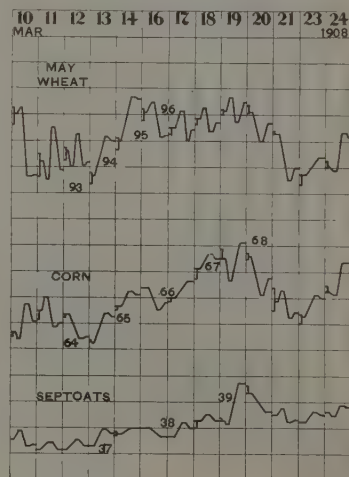 10 11 12 13 14 15 16 17 18 19 20 21 23 24
MAR. 1908
MAY
WHEAT
96
95
94
93
CORN
68
67
66
65
64
SEPTOATS
39
38
37